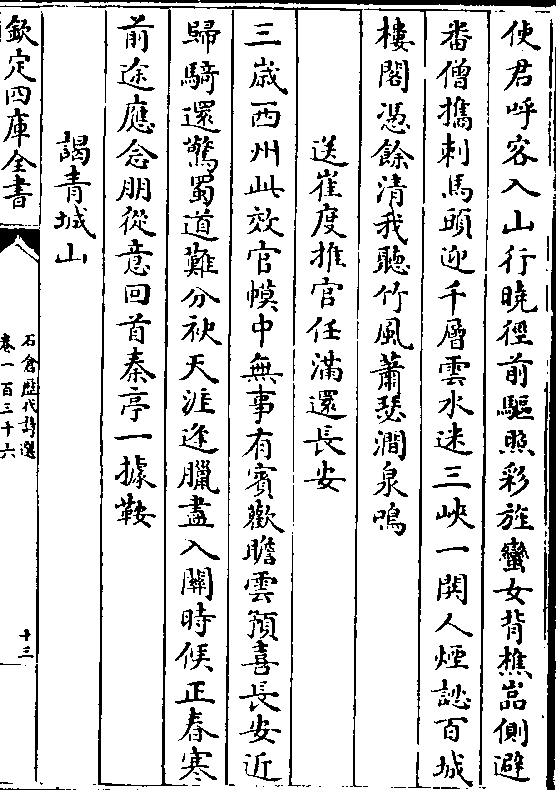 使君呼客入山行曉徑前驅照彩旌蠻女背樵嵓側避
番僧攜刺馬頭迎千層雲水迷三峽一閧人煙認百城
樓閣憑餘清我聽竹風蕭瑟澗泉鳴
送崔度推官任滿還長安
三歲西州此效官幙中無事有賓歡瞻雲預喜長安近
歸騎還驚蜀道難分袂天涯逢臘盡入關時候正春寒
前途應念朋從意回首秦亭一據鞍
謁青城山
欽定四庫全書
石倉歷代詩選
卷一百三十六
十三